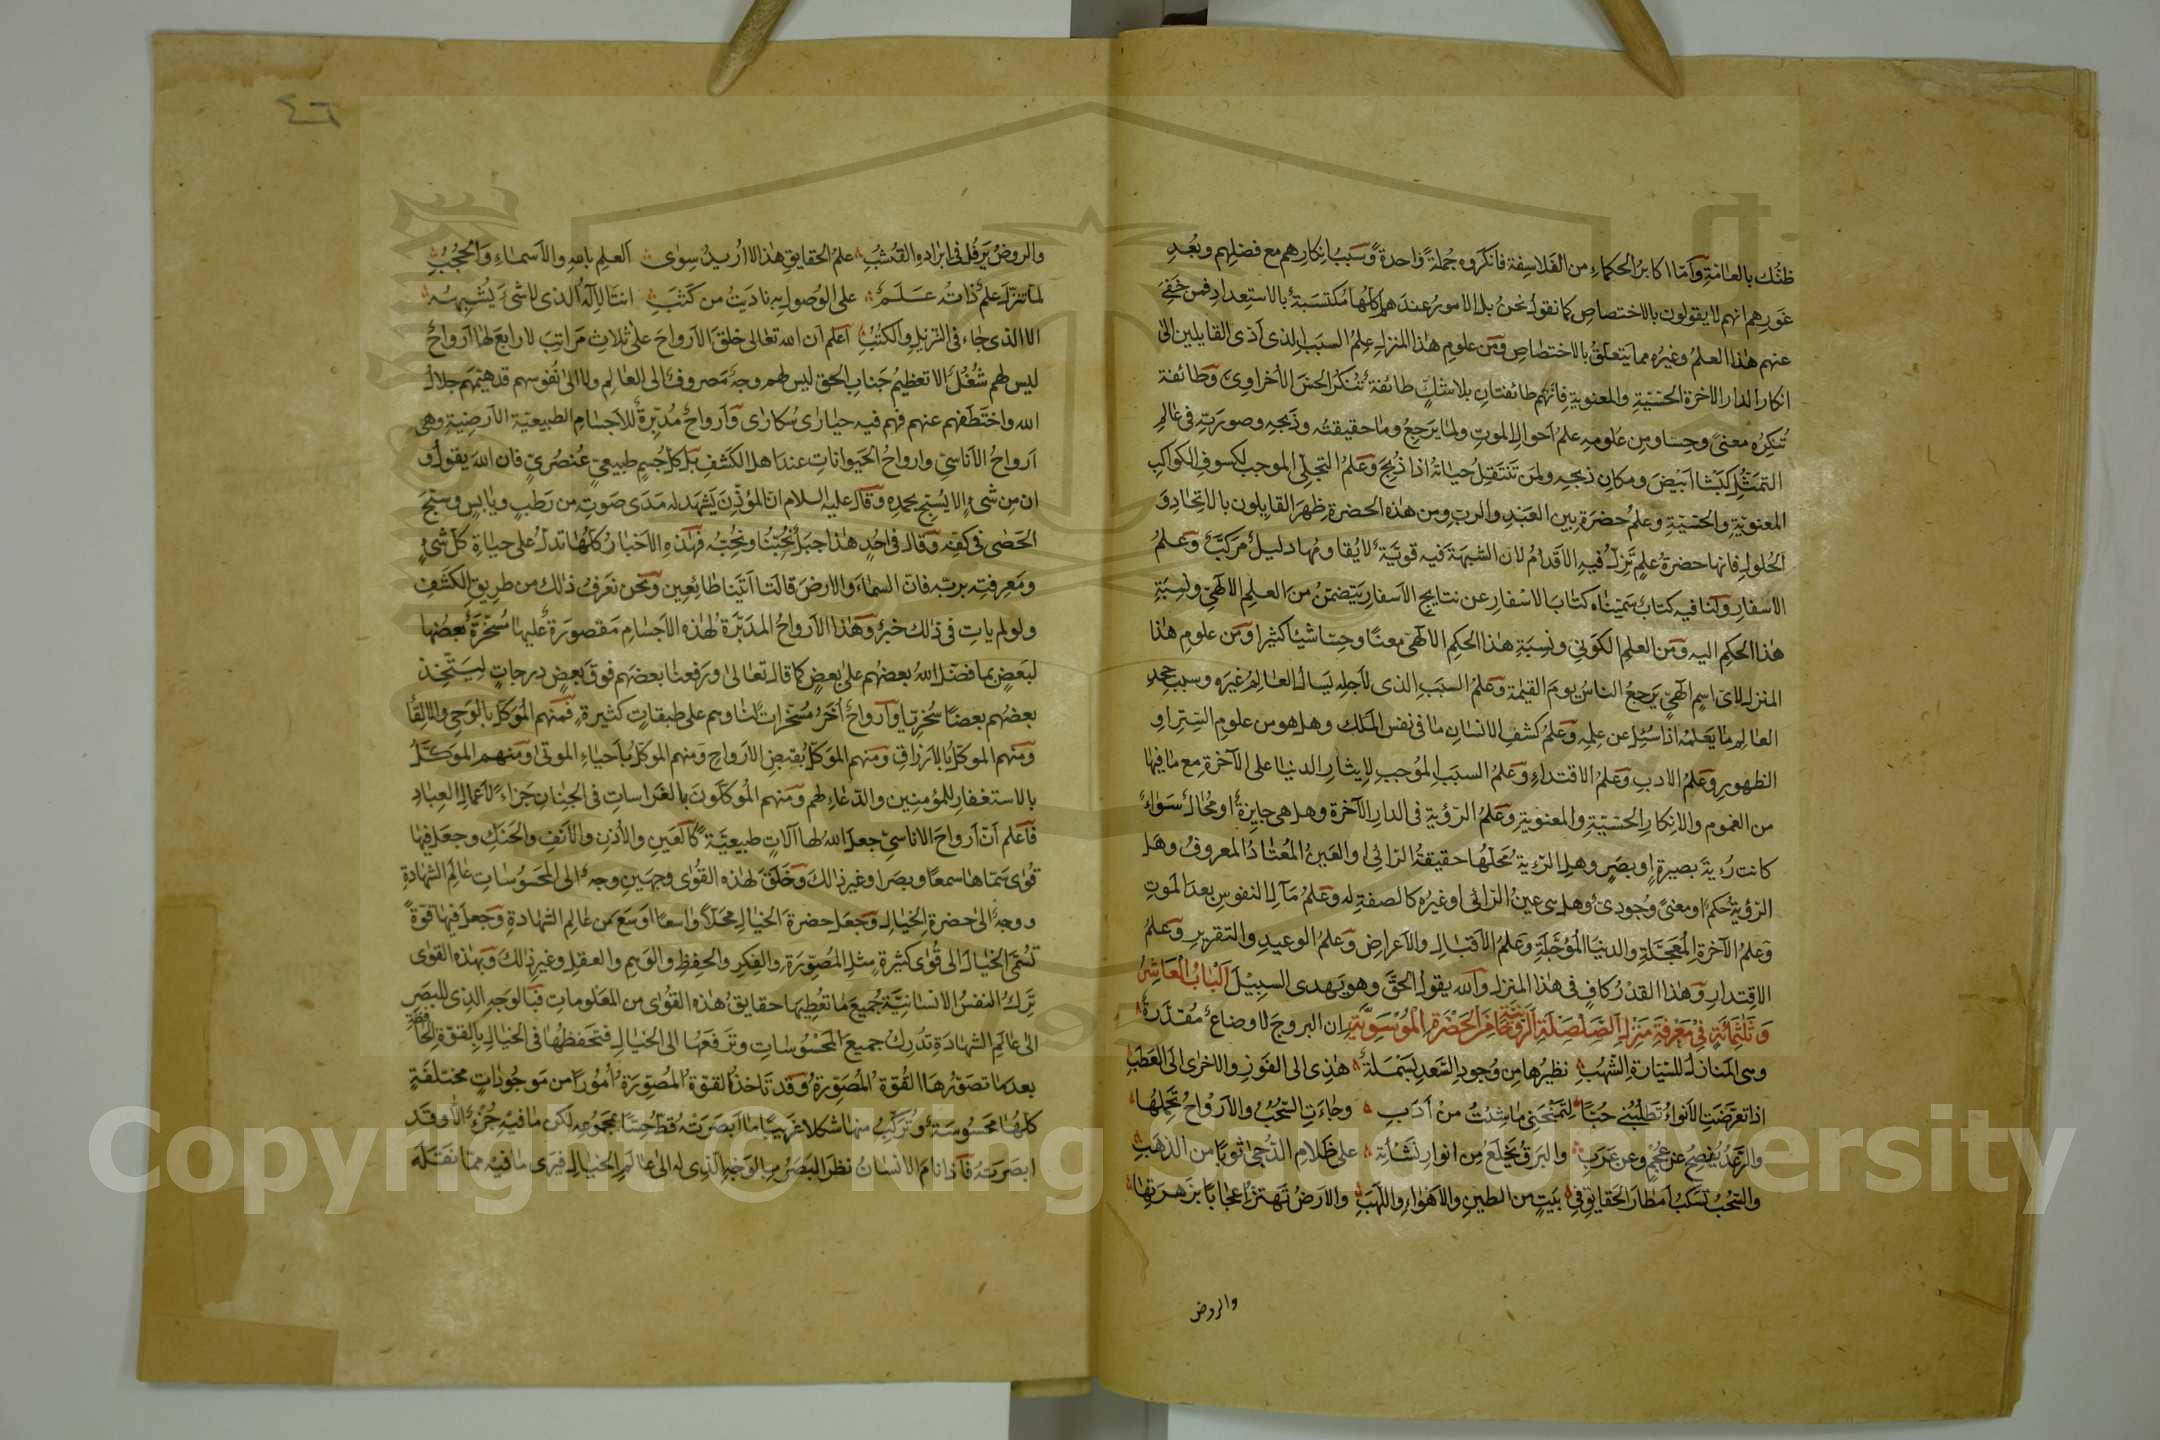 ظنك بالعامة وأما اكابر الحكماء من الفلاسفة فانكروه جملة واحدة وسبب انكارهم مع فضلهم وبعد
غورهم انهم لا يقولون بالاختصاص كما نقول نحن بل الامور عندهم كلها مكتسبة بالاستعداد فمن خفي
عنهم هذا العلم وغيره مما يتعلق بالاختصاص ومن علوم هذا المنزل علم السبب الذي أدى القايلين الى
انكار الدار الاخرة الحسية والمعنوية فانهم طائفتان بلا شك طائفة تنكر الحس الاخراوي وطائفة
تنكره معنى وحسا ومن علومه علم احوال الموت ولما يرجع وما حقيقته وذبحه وصورته في عالم
التمثل كبشا ابيض ومكان ذبحه ولمن تنتقل حياته اذا ذبح وعلم التجلي الموجب لكسوف الكواكب
المعنوية والحسية وعلم حضرة بين العبد والرب ومن هذه الحضرة ظهر القايلون بالاتحاد و
الحلول فانها حضرة علم تزل فيه الاقدام لان الشبهة فيه قوية لا يقاومها دليل مركب وعلم
الاسفار ولنا فيه كتاب سميناه كتاب الاسفار عن نتايج الاسفار يتضمن من العلم الالهي ونسبة
هذا الحكم اليه ومن العلم الكوني ونسبة هذا الحكم الالهي معنا وحسا شيئا كثيرا ومن علوم هذا
المنزل لاي اسم الهي يرجع الناس يوم القيمة وعلم السبب الذي لاجله يسأل العالم غيره وسبب جحد
العالم ما يعلمه اذا سئل عن علمه وعلم كشف الانسان ما في نفس الملك وهل هو من علوم الستر او
الظهور وعلم الادب وعلم الاقتداء وعلم السبب الموجب لايثار الدنيا على الآخرة مع ما فيها
من الغموم والانكار الحسية والمعنوية وعلم الرؤية في الدار الآخرة وهل هي جايزة او محال سواء
كانت رؤية بصيرة او بصر وهل الرؤية محلها حقيقة الرائي او العين المعتاد المعروف وهل
الرؤية حكم او معنى وجودي وهل هي عين الرائي او غيره كالصفة له وعلم مآل النفوس بعد الموت
وعلم الآخرة المعجلة والدنيا المؤجلة وعلم الاقبال والاعراض وعلم الوعيد والتقرير وعلم
الاقتدار وهذا القدر كاف في هذا المنزل والله يقول الحق وهو يهدي السبيل الباب العاشر
وثلثمائة في معرفة منزل الصلصلة الروحانية من الحضرة الموسوية ان البروج لاوضاع مقدرة
وهي المنازل للسيارة الشهب نظيرها من وجود السعد بسملة هذي الى الفوز والاخرى الى العطب
اذا تعرضت الانواء تطلبني حبا لتمنحني ما شئت من أدب وجاءت السحب والارواح تحملها
والرعد يفصح عن عجم وعن عرب والبرق يخلع من انوار نشأته على ظلام الدجى ثوبا من الذهب
والسحب تسكب امطار الحقايق في بيت من الطين والاهواء واللهب والارض تهتز اعجابا بزهرتها
والروض
٤٦
والروض يرفل في ابراده القشب علم الحقايق هذا لا اريد سوى العلم بالله والاسماء والحجب
لما تنزل علم ذاته علم على الوصول به ناديت من كثب انت الاله الذي لا شيء يشبهه
الا الذي جاء في التنزيل والكتب اعلم ان الله تعالى خلق الارواح على ثلاث مراتب لا رابع لها ارواح
ليس لهم شغل الا تعظيم جناب الحق ليس لهم وجه مصروف الى العالم ولا الى نفوسهم قد هيمهم جلال
الله واختطفهم عنهم فهم فيه حيارى سكارى وأرواح مدبرة للاجسام الطبيعية الارضية وهي
ارواح الاناسي وارواح الحيوانات عند اهل الكشف بل كل جسم طبيعي عنصري فان الله يقول و
ان من شيء الا يسبح بحمده وقال عليه السلام ان المؤذن يشهد له مدى صوته من رطب ويابس وسبح
الحصى في كفه وقال في احد هذا جبل يحبنا ونحبه فهذه الاخبار كلها تدل على حياة كل شيء
ومعرفته بربه فان السماء والارض قالتا اتينا طائعين ونحن نعرف ذلك من طريق الكشف
ولو لم يات في ذلك خبر وهذا الارواح المدبرة لهذه الاجسام مقصورة عليها مسخرة بعضها
لبعض بما فضل الله بعضهم على بعض كما قال تعالى ورفعنا بعضهم فوق بعض درجات ليتخذ
بعضهم بعضا سخريا وارواح أخر مسخرات لنا وهم على طبقات كثيرة فمنهم الموكل بالوحي والالقاء
ومنهم الموكل بالارزاق ومنهم الموكل بقبض الارواح ومنهم الموكل باحياء الموتى ومنهم الموكل
بالاستغفار للمؤمنين والدعاء لهم ومنهم الموكلون بالغراسات في الجنان جزاء لاعمال العباد
فاعلم أن أرواح الاناسي جعل الله لها آلات طبيعية كالعين والأذن والأنف والحنك وجعل فيها
قوى سماها سمعا وبصرا وغير ذلك وخلق لهذه القوى وجهين وجه الى المحسوسات عالم الشهادة
ووجه الى حضرة الخيال وجعل حضرة الخيال محلا واسعا اوسع من عالم الشهادة وجعل فيها قوة
تسمى الخيال الى قوى كثيرة مثل المصورة والفكر والحفظ والوهم والعقل وغير ذلك وبهذه القوى
تدرك النفس الانسانية جميع ما تعطيها حقايق هذه القوى من المعلومات فبالوجه الذي للبصر
الى عالم الشهادة تدرك جميع المحسوسات وترفعها الى الخيال فتحفظها في الخيال بالقوة الحافظة
بعد ما تصورها القوة المصورة وقد تاخذ القوة المصورة امورا من موجودات مختلفة
كلها محسوسة وتركب منها شكلا غريبا ما ابصرته قط حسا بمجموعه لكن ما فيه جزء الا وقد
ابصرته فاذا نام الانسان نظر البصر بالوجه الذي له الى عالم الخيال فيرى ما فيه مما نقله
Copyright © King Saud University